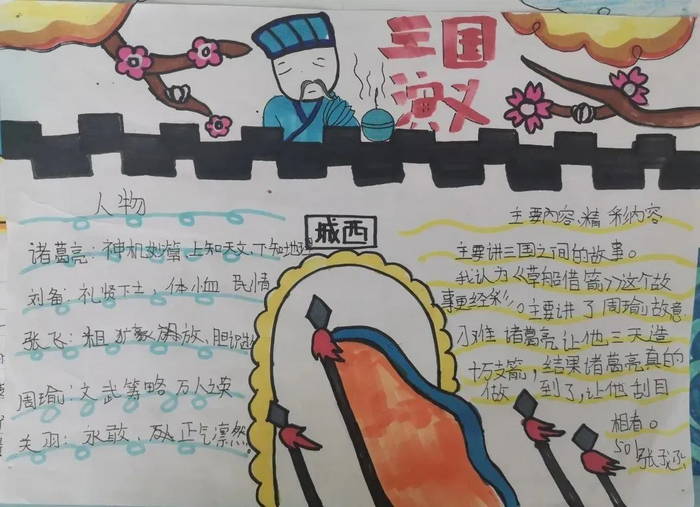 三国
演义
人物
诸葛亮：神机妙算，上知天文，下知地理
刘备：礼贤下士，体恤 民情
张飞：粗犷豪放、胆识
周瑜：文武筹略 万人之英
关羽： 正气凛然。
城西
主要内容、精彩内容
主要讲三国之间的故事。
我认为《草船借箭》这个故
事更经彩。主要讲了周瑜故意
刁难诸葛亮让他三天造
十万支箭，结果诸葛亮真的
做到了，让他刮目
相看。
501张